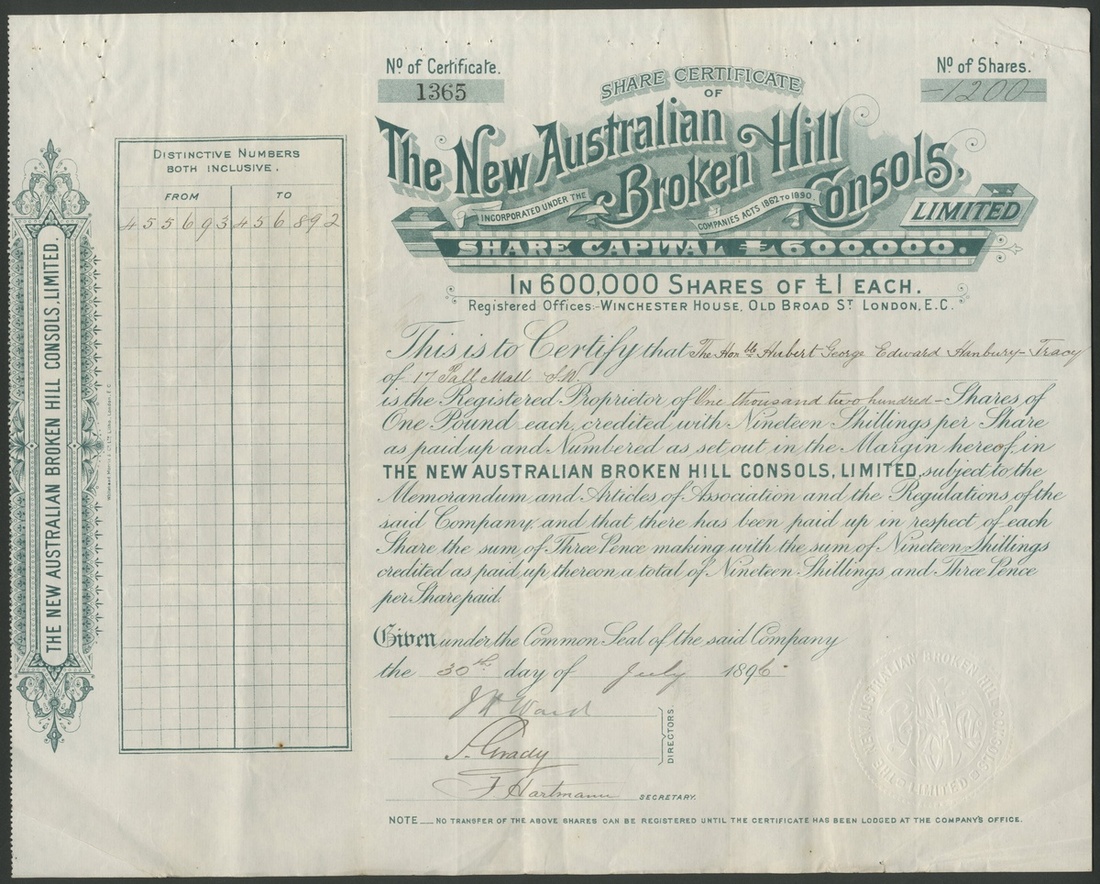 No. of Certificate.
1365
No. of Shares.
1200
SHARE CERTIFICATE
OF
The New Australian
Broken Hill
Consols,
LIMITED
INCORPORATED UNDER THE
COMPANIES ACTS 1862 TO 1890.
SHARE CAPITAL £600,000.
IN 600,000 SHARES OF £1 EACH.
Registered Offices:- WINCHESTER HOUSE, OLD BROAD ST. LONDON, E.C.
DISTINCTIVE NUMBERS
BOTH INCLUSIVE.
FROM TO
455693 456892
THE NEW AUSTRALIAN BROKEN HILL CONSOLS, LIMITED.
This is to Certify that The Honble Hubert George Edward Hanbury-Tracy
of 17 Pall Mall S.W.
is the Registered Proprietor of One thousand two hundred - Shares of
One Pound each, credited with Nineteen Shillings per Share
as paid up and Numbered as set out in the Margin hereof, in
THE NEW AUSTRALIAN BROKEN HILL CONSOLS, LIMITED, subject to the
Memorandum and Articles of Association and the Regulations of the
said Company, and that there has been paid up in respect of each
Share the sum of Three Pence making with the sum of Nineteen Shillings
credited as paid up thereon a total of Nineteen Shillings and Three Pence
per Share paid.
Given under the Common Seal of the said Company
the 30th day of July 1896
J H Ward
S. Grady
DIRECTORS
F Hartmann SECRETARY.
THE NEW AUSTRALIAN BROKEN HILL CONSOLS LIMITED
NOTE __ NO TRANSFER OF THE ABOVE SHARES CAN BE REGISTERED UNTIL THE CERTIFICATE HAS BEEN LODGED AT THE COMPANY'S OFFICE.